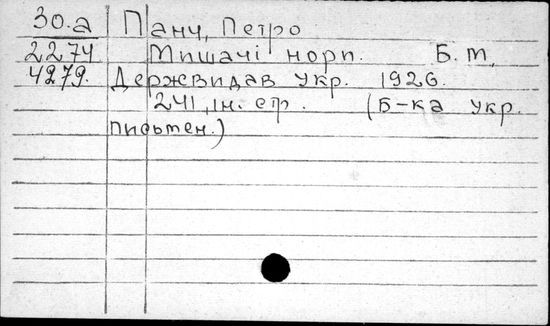 30.а Панч, Петро
2274 Мишачі норп. Б.м,
4279. Держвидав Укр. 1926.
241, ін. стр. (Б-ка укр.
письмен.)